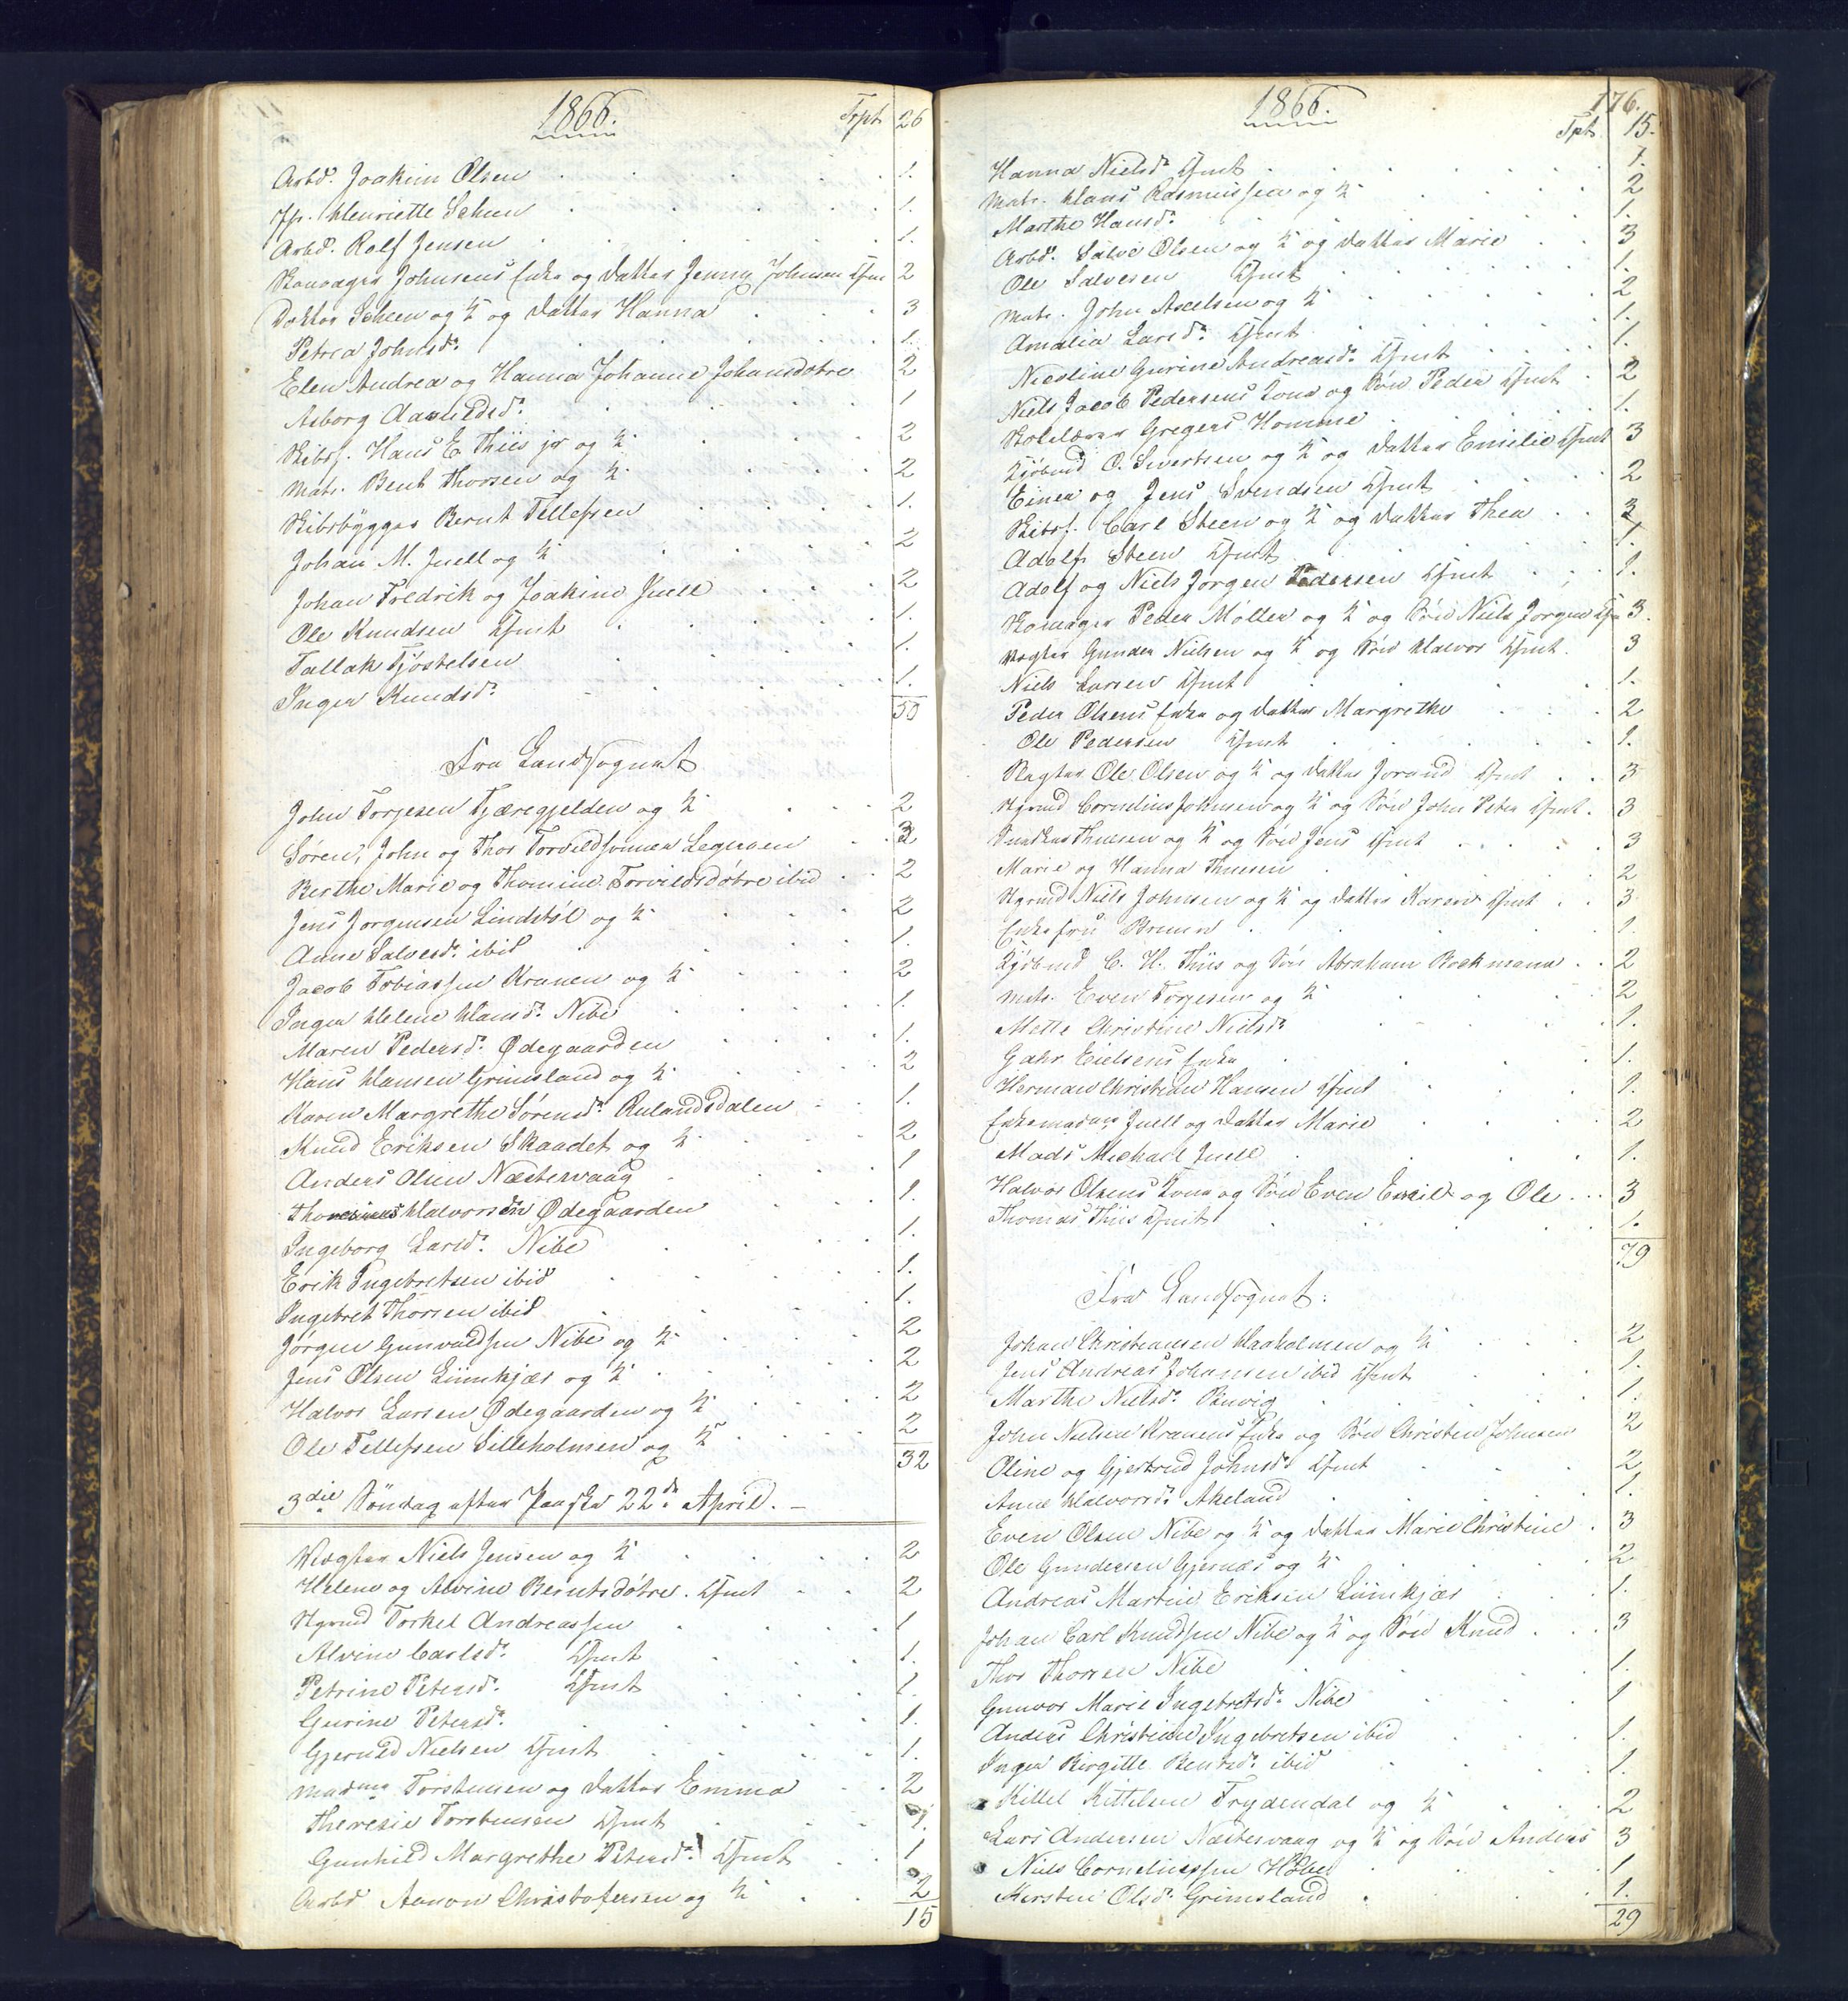 1866.
Trpt 26
Arbd. Joakim Olsen 1.
Jfr. Henriette Scheen 1.
Arbd. Rolf Jensen 1.
Skomager Johnsens Enke og Datter Jenny Johnsen 2
Doktor Scheen og K. og Datter Hanna 3
Petrea Johnsd. 1.
Elen Andrea og Hanna Johanne Johansdøtre 2
Asborg Aanildsd. 1
Skibsf. Hans E. Thiis jr og K. 2
Matr. Bent Thorsen og K. 2
Skibsbygger Bernt Tellefsen 1.
Johan M. Juell og K. 2
Johan Fredrik og Joakim Juell 2
Ole Knudsen Cfmt 1.
Tallak Tjøstelsen 1.
Inger Knudsd. 1.
50
Fra Landsognet
John Torjesen Tjæregjelden og K. 2
Søren, John og Thor Torvildsønner 3
Berthe Marie og Thomine Torvildsdøtre ibid 2
Jens Jørgensen Lindstøl og K. 2
Anne Salvesd. ibid 1.
Jacob Tobiassen Kranen og K. 2
Inger Helene Hansd. Nibe 1.
Maren Pedersd. Ødegaarden 1.
Hans Hansen Grimsland og K. 2
Karen Margrethe Sørensd. Rulandsdalen 1.
Knud Eriksen Skaadet og K. 2
Anders Olsen Næstervaag 1
Halvorsen Ødegaarden 1.
Ingeborg Larsd. Nibe 1.
Erik Ingebretsen ibid 1.
Ingebret Thorsen ibid 1.
Jørgen Gunvaldsen Nibe og K. 2
Jens Olsen Liimkjær og K. 2
Halvor Larsen Ødegaarden og K. 2
Ole Tellefsen Silleholmen og K. 2
32
3die Søndag efter Paaske 22de April. –
Vægter Niels Jensen og K. 2
Helene og Alvine Berntsdøtre. Cfmt 2
Hgmd Torkel Andreassen 1
Alvine Carlsd. Cfmt 1.
Petrine Petersd. Cfmt 1.
Gurine Petersd. 1.
Gjeruld Nielsen Cfmt 1.
Madme Torstensen og Datter Emma 2
Theresie Torstensen Cfmt 1.
Gunhild Margrethe Petersd. Cfmt 1
Arbd Aanon Christofersen og K. 2
15
1866.
176.
Tpt 15.
Hanna Nielsd. Cfmt 1.
Matr. Hans Rasmussen og K. 2
Marthe Hansd. 1.
Arbd. Salve Olsen og K. og Datter Marie 3
Ole Salvesen Cfmt 1.
Matr. John Axelsen og K. 2
Amalia Larsd. Cfmt 1.
Nicoline Gurine Andreasd. Cfmt 1.
Niels Jacob Pedersens Kone og Søn Peder Cfmt 2
Skolelærer Gregers Homme 1.
Kjøbmd O. Sivertsen og K. og Datter Emilie Cfmt 3
Einer og Jens Svendsen Cfmt 2
Skibsf. Carl Steen og K. og Datter Thea 3
Adolf Steen Cfmt 1.
Adolf og Niels Jørgen Pedersen Cfmt 1.
Skomager Peder Møller og K. og Søn Niels Jørgen 3.
Vægter Gunder Nielsen og K. og Søn Halvor Cfmt. 3
Niels Larsen Cfmt 1.
Peder Olsens Enke og Datter Margrethe 2
Ole Pedersen Cfmt 1.
Slagter Ole Olsen og K. og Datter Jorand Cfmt 3
Hgmd Cornelius Johnsen og K. og Søn John Peter Cfmt. 3
Snedker Thuesen og K. og Søn Jens Cfmt 3
Marie og Hanna Thuesen 2
Hgmd Niels Johnsen og K. og Datter Karen Cfmt 3
Enkefru Bruun 1.
Kjøbmd C. H. Thiis og Søn Abraham Bockmann 2
Matr. Even Torjesen og K. 2
Mette Christine Nielsd. 1.
Gahr Eielsens Enke 1.
Herman Christian Hansen Cfmt 1.
Enkemadme Juell og Datter Marie 2
Mads Michael Juell 1.
Halvor Olsens Kone og Søn Even Emil og Ole 3
Thomas Thiis Cfmt 1.
79
Fra Landsognet:
Johan Christiansen Haaholmen og K. 2
Jens Andreas Johansen ibid Cfmt 1.
Marthe Nielsd. Sanvig 1.
John Nielsen Kranens Enke og Søn Christen Johnsen 2
Oline og Gjertrud Johnsd. Cfmt 2
Anne Halvorsd. Akeland 1.
Even Olsen Nibe og K. og Datter Marie Christine 3
Ole Gundersen Gjernæs og K. 2
Andreas Martin Eriksen Liimkjær 1.
Johan Carl Knudsen Nibe og K. og Søn Knud 3
Thor Thorsen Nibe 1.
Gunvor Marie Ingebretsd. Nibe 1
Anders Christian Ingebretsen ibid 1.
Inger Birgitte Bentsd. ibid 1.
Kittel Kittelsen Frydendal og K. 2
Lars Andersen Næstervaag og K. og Søn Anders 3
Niels Corneliussen 1
Kirstine Olsd. Grimsland 1.
29